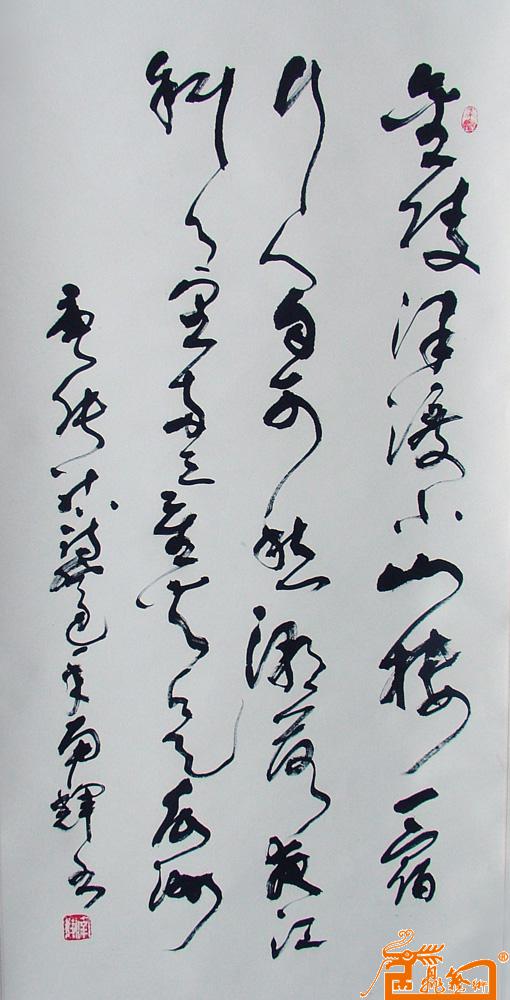 金陵津渡小山樓一宿
行人自可愁潮落夜江
斜月里兩三星火是瓜洲
唐張祜詩年南輝書